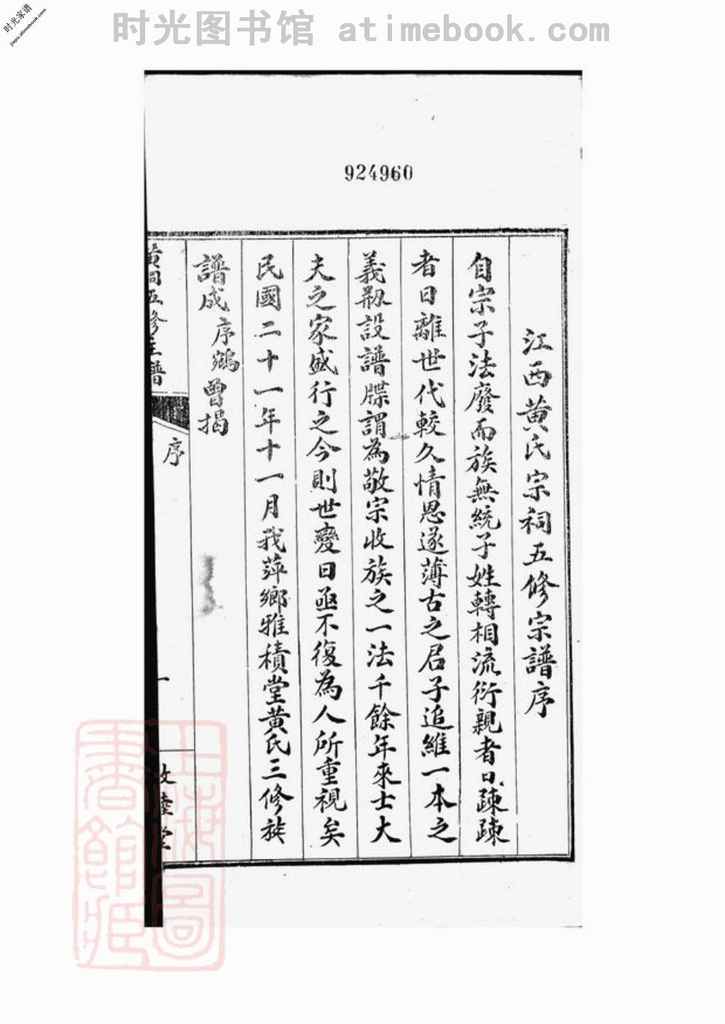 时光图书馆 atimebook.com
时光家谱
924960
江西黄氏宗祠五修宗譜序
自宗子法廢而族無統子姓轉相流衍親者日疎疎
者日離世代較久情恩遂薄古之君子追維一本之
義剏設譜牒謂為敬宗收族之一法千餘年來士大
夫之家盛行之今則世變日亟不復為人所重視矣
民國二十一年十一月我萍鄉雅積堂黄氏三修族
譜成序鵷曾揭
黄祠五修主譜
序
一
敦睦堂